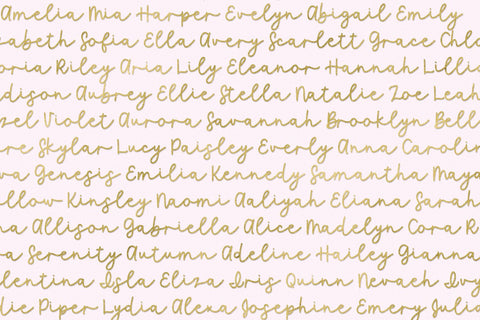 Amelia Mia Harper Evelyn Abigail Emily
zabeth Sofia Ella Avery Scarlett Grace Chlo
oria Riley Aria Lily Eleanor Hannah Lilli
dison Aubrey Ellie Stella Natalie Zoe Leah
zel Violet Aurora Savannah Brooklyn Bell
re Skylar Lucy Paisley Everly Anna Carolin
va Genesis Emilia Kennedy Samantha Maya
llow Kinsley Naomi Aaliyah Eliana Sarah
na Allison Gabriella Alice Madelyn Cora R
a Serenity Autumn Adeline Hailey Gianna
lentina Isla Eliza Iris Quinn Nevaeh Ivy
lie Piper Lydia Alexa Josephine Emery Julia